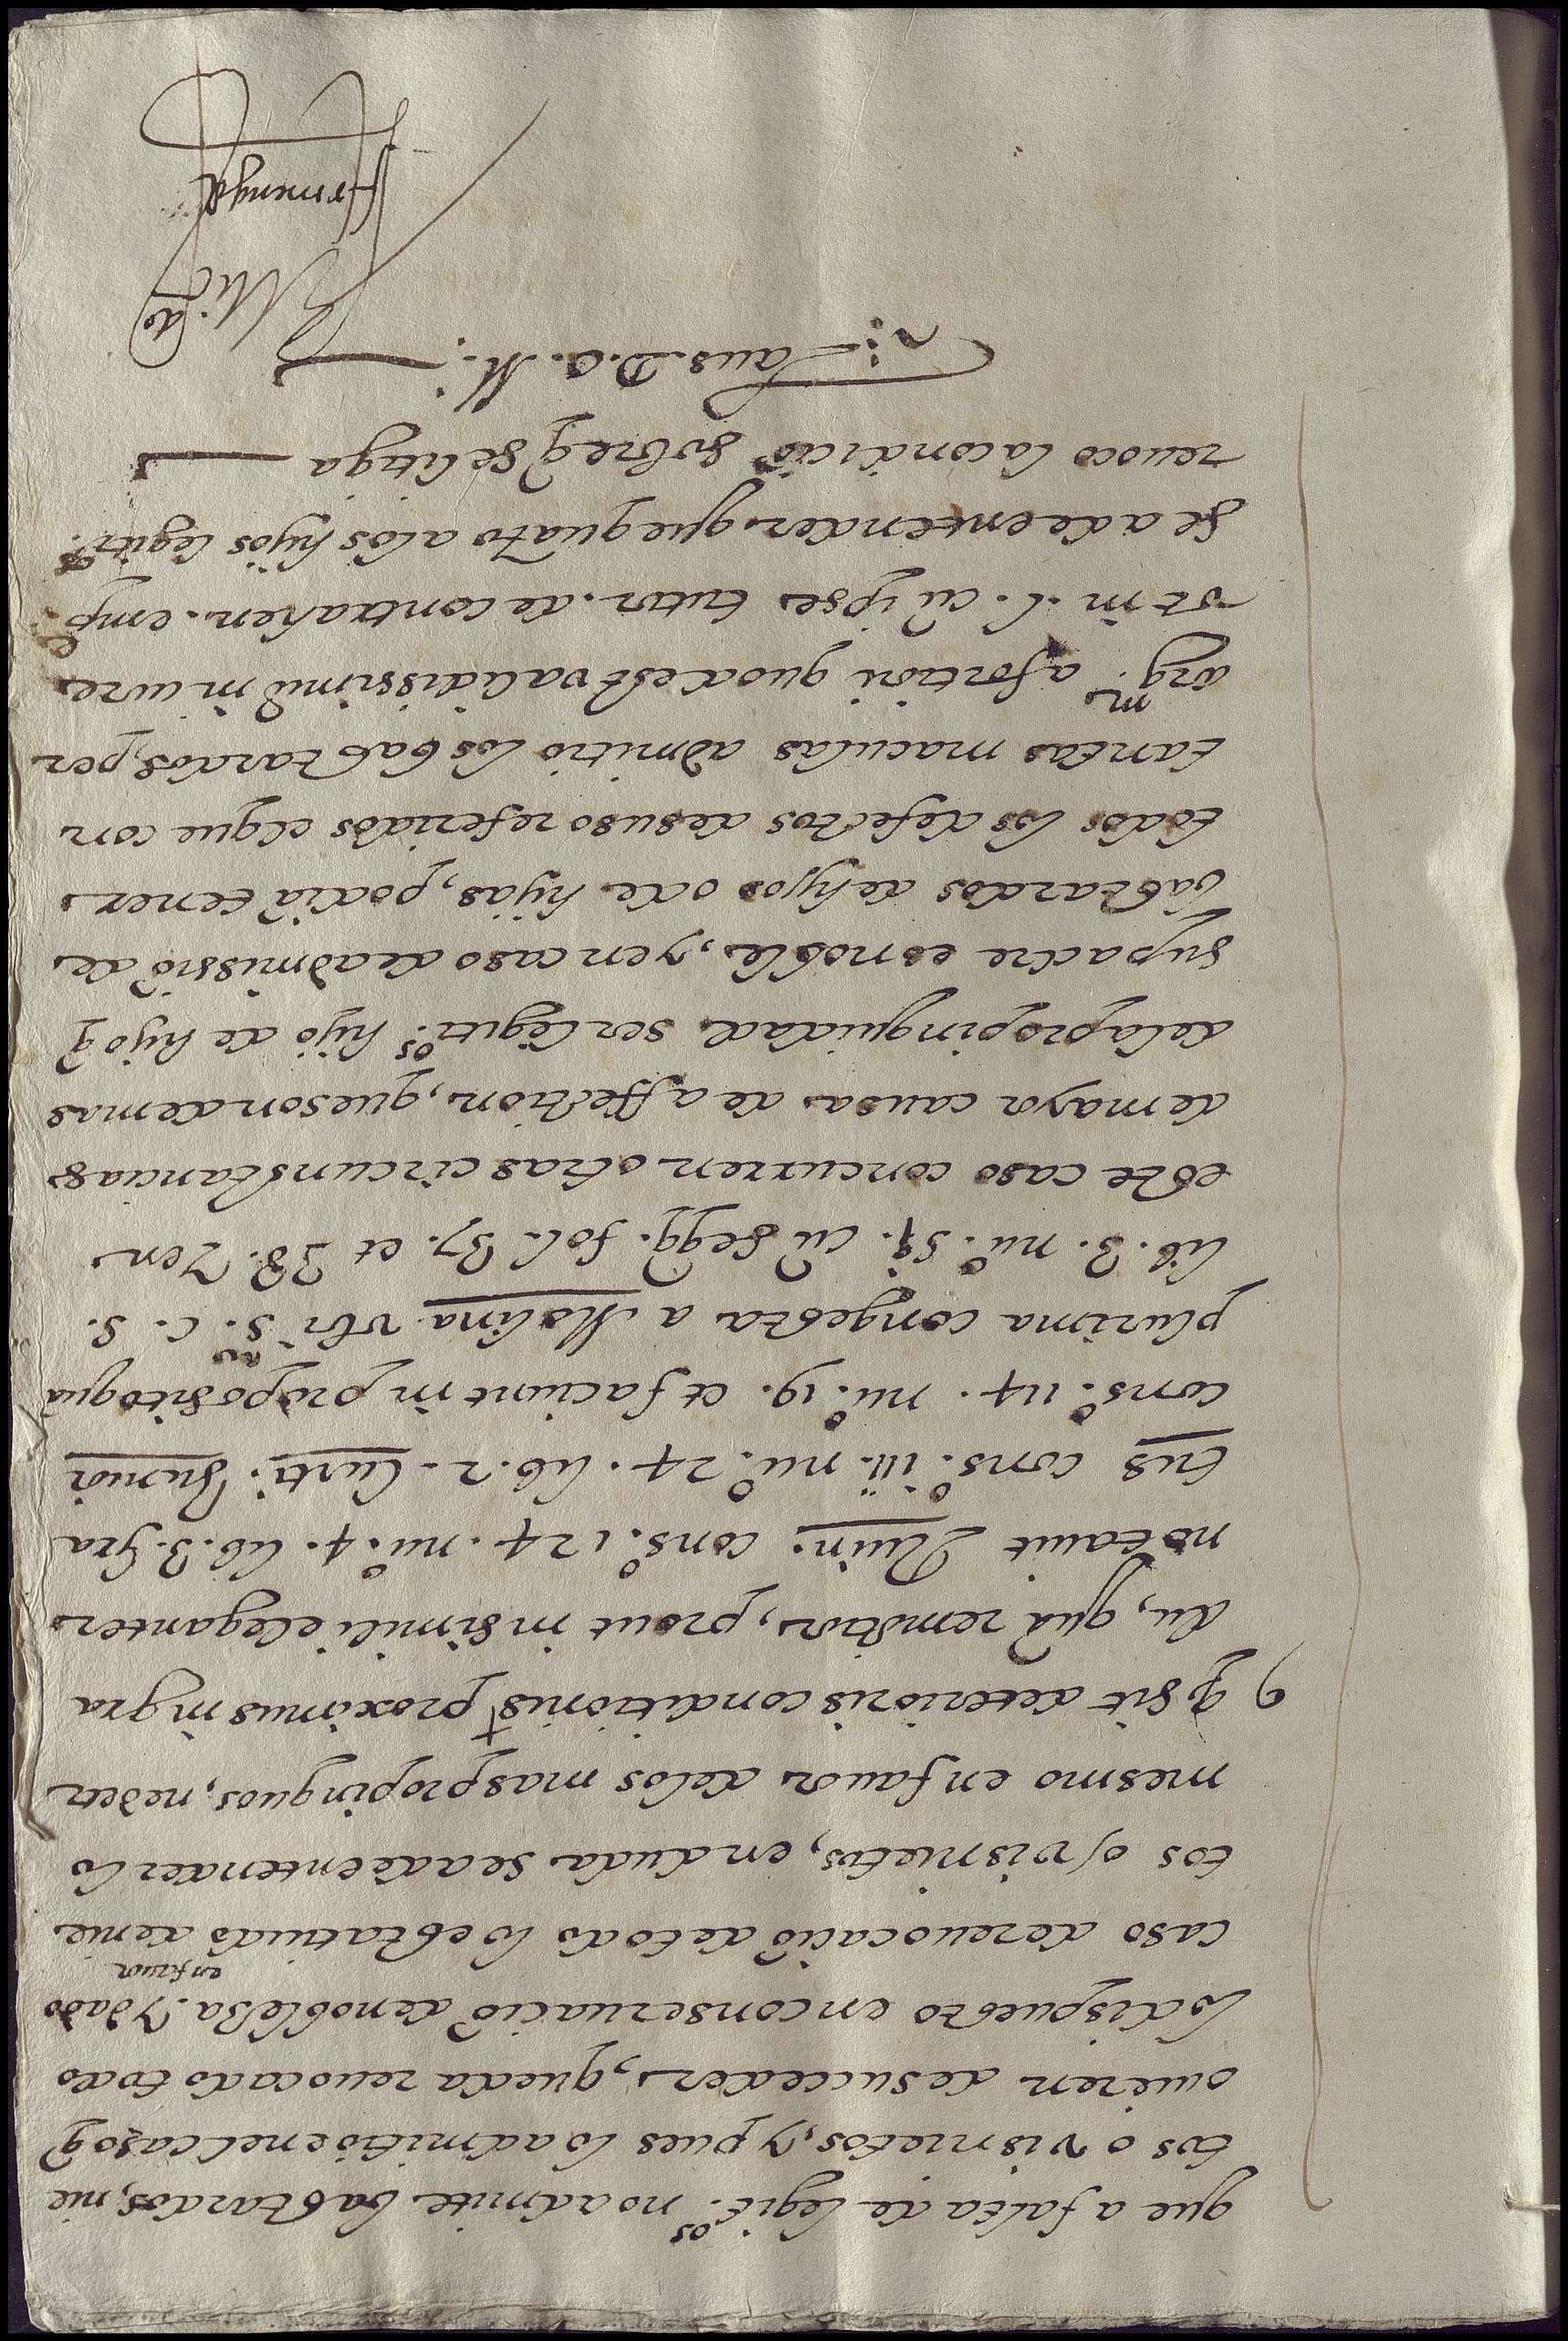 que a falta de legit.os no admite bastardos, nie
tos o visnietos, y pues lo admitio en el caso q̃
ouieren de succeder, queda reuocado todo
lo dispuesto en conseruaciõ de noblesa. Y dado
en fauor
caso de reuocaciõ de todo lo estatuido de nie
tos o/ visnietos, en duda se a de entender lo
mesmo en fauor de los mas propinquos, nedũ
q̃ sit deterioris conditionis + proximus in gra
du, quã remotior, prout in simili eleganter
notauit Ruin. cons.o 124. nu.o 4. lib. 3. Gra
tus cons.o iii. nu.o 24. lib. 2. Curti. Junior
cons.o 114. nu.o 19. et faciunt in proposito quã
plurima congesta a Molina vbi s.a c. 5.
lib. 3. nu.o 59. cũ seqq. fol. 37. et 38. Y en
este caso concurren otras circunstancias
de mayor causa de affection, que son demas
de la propinquidad ser legiti.os hijo de hijo q̃
su padre es noble, y en caso de admissiõ de
bastardos de hijos o de hijas, podiã tener
todos los defectos de suso referidos el que con
tantas maculas admitio los bastardos, per
arg.m a fortiori quod est validissimũ in iure
vt in l. cũ ipse tutor. de contrahen. emp.
se a de entender que quãto a los hijos legiti.os
reuoco la condiciõ sobre q̃ se litiga
Laus D. O. M.
Mic
Armengol